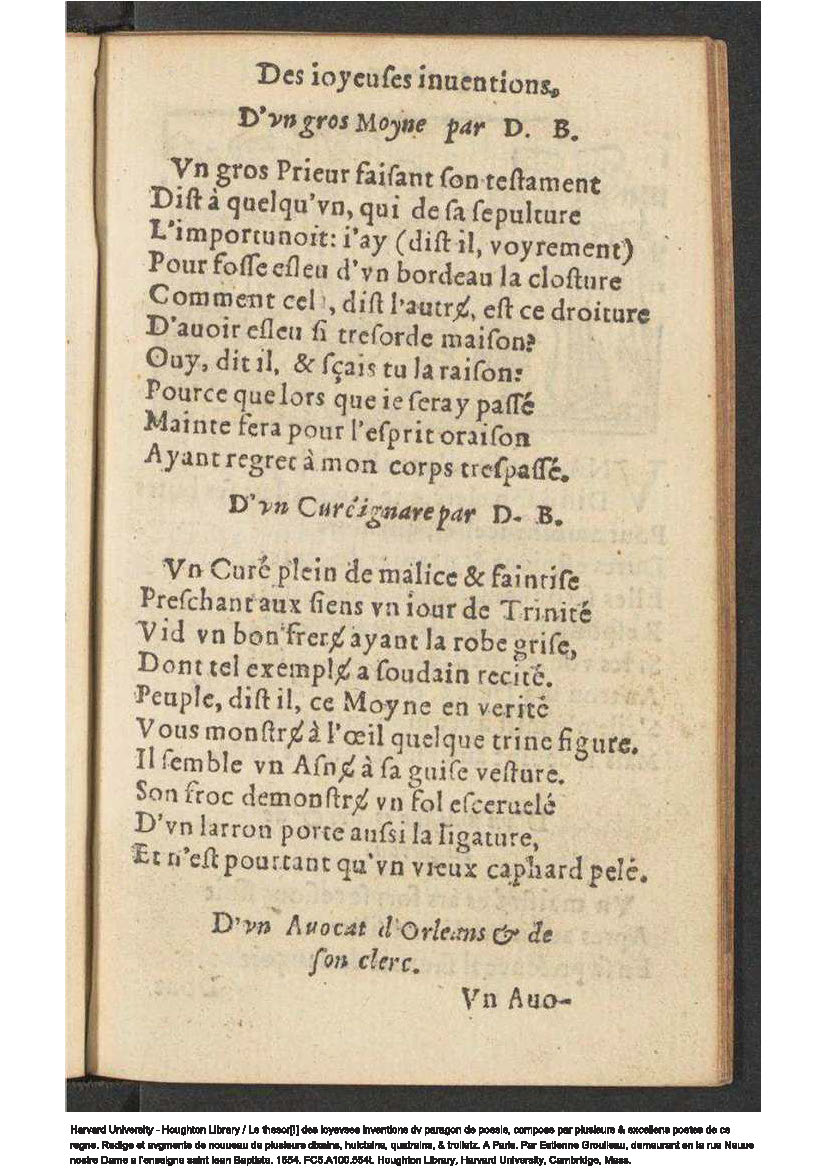 Des ioyeuſes inuentions.
D'vn gros Moyne par D. B.
Vn gros Prieur faiſant ſon teſtament
Diſt à quelqu'vn, qui de ſa ſepulture
L'importunoit: i'ay (diſt il, voyrement)
Pour foſſe eſleu d'vn bordeau la cloſture
Comment cel, diſt l'autrɇ, eſt ce droiture
D'auoir eſleu ſi treſorde maiſon?
Ouy, dit il, & ſçais tu la raiſon?
Pource que lors que ie ſeray paſſé
Mainte fera pour l'eſprit oraiſon
Ayant regret à mon corps treſpaſſé.
D'vn Curé ignare par D. B.
Vn Curé plein de malice & faintiſe
Preſchant aux ſiens vn iour de Trinité
Vid vn bon frerɇ ayant la robe griſe,
Dont tel exemplɇ a ſoudain recité.
Peuple, diſt il, ce Moyne en verité
Vous monſtrɇ à l'œil quelque trine figure.
Il ſemble vn Aſnɇ à ſa guiſe veſture.
Son froc demonſtrɇ vn fol eſceruelé
D'vn larron porte auſsi la ligature,
Et n'eſt pourtant qu'vn vieux caphard pelé.
D'vn Auocat d'Orleans & de
ſon clerc.
Vn Auo-
Harvard University - Houghton Library / Le thesor[i] des ioyevses inventions dv paragon de poesie, compose par plusieurs & excellens poetes de ce
regne. Redige et avgmente de nouueau de plusieurs dixains, huictains, quatrains, & trolletz. A Paris. Par Estienne Groulleau, demeurant en la rue Neuue
nostre Dame a l'enseigne saint Iean Baptiste. 1554. FC5.A100.554t. Houghton Library, Harvard University, Cambridge, Mass.